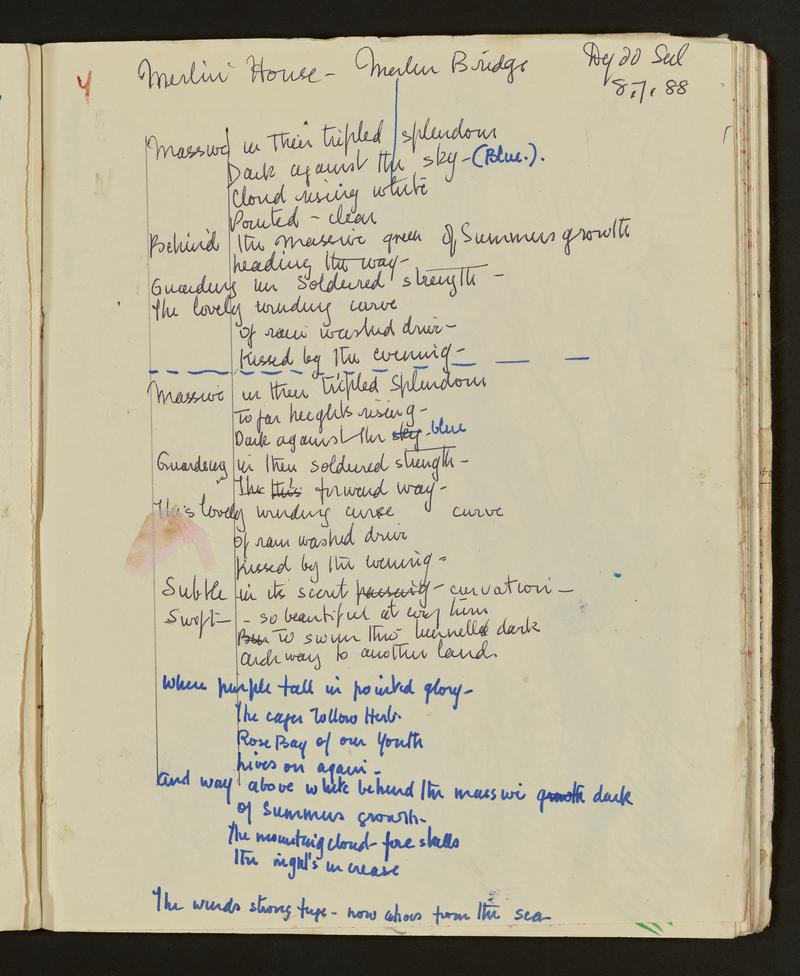 Merlin House - Merlin Bridge
Dydd Sul
8.7.88
Massive in their tripled splendour
Dark against the sky - (Blue.).
Cloud rising white
Pointed - clear
Behind the massive green of Summers growth
heading the way -
Guarding in soldiered strength -
The lovely winding curve
of rain washed drive -
Kissed by the evening -
Massive in their tripled Splendour
To far heights rising -
Dark against the sky - blue
Guarding in their soldiered strength -
The this forward way -
This lovely winding curve curve
of rain washed drive
Kissed by the evening -
Subtle in its scent passing - curvation -
Swift - so beautiful at every turn
To swim thro' tunnelled dark
archway to another land.
Where purple tall in pointed glory -
The eager Willow Herb.
Rose Bay of our Youth
Lives on again -
And way above white behind the massive growth dark
of Summers growth.
The mounting cloud - foretells
The night's increase
The winds strong - now from the sea